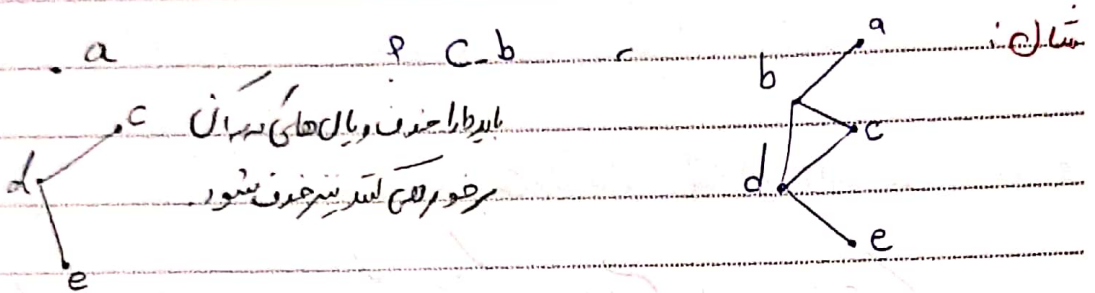 مثال:
a
b
c
d
e
، C-b ؟
باید b را حذف و یال های که به آن
برخورد می کنند نیز حذف شود.
a
c
d
e